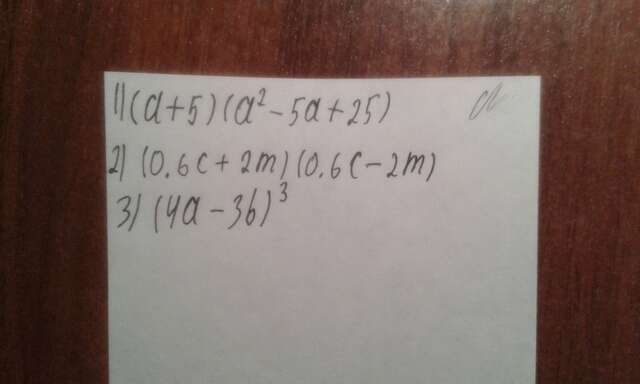 1) (a+5)(a²-5a+25)
2) (0.6c+2m)(0.6c-2m)
3) (4a-3b)³